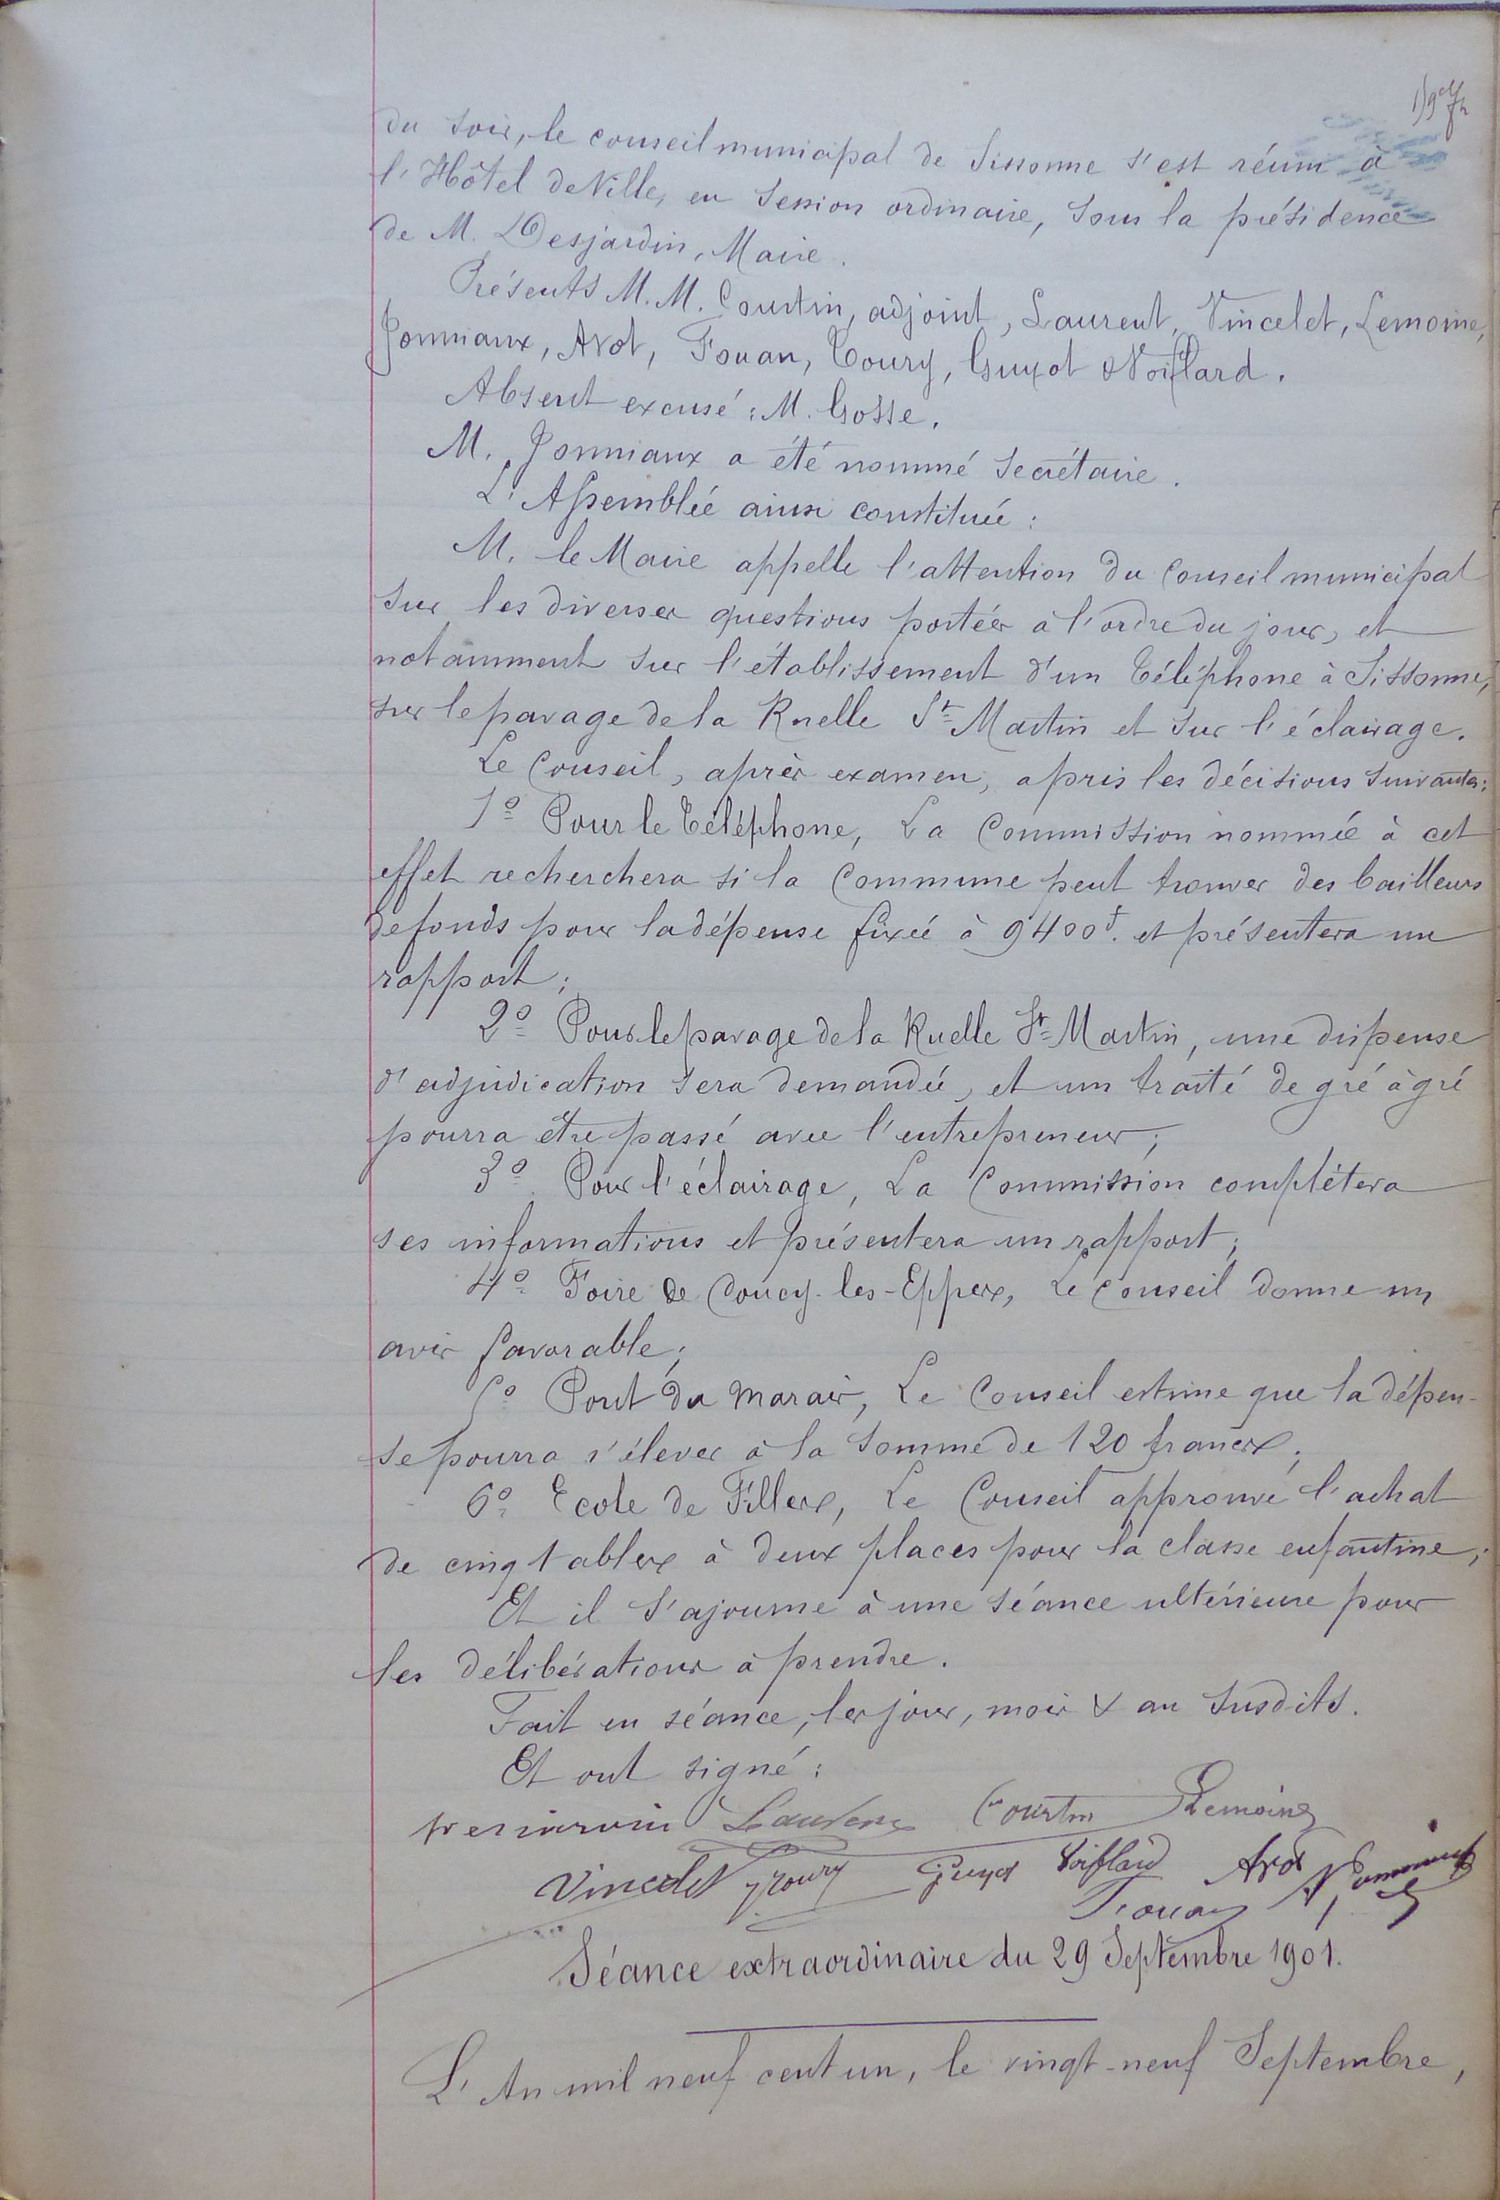 du soir, le conseil municipal de Sissonne s'est réuni à
l'Hôtel de Ville, en session ordinaire, sous la présidence
de M. Desjardin, Maire.
Présents M.M. Courtin, adjoint, Laurent, Vincelet, Lemoine,
Jonniaux, Avot, Fouan, Toury, Guyot & Noiflard.
Absent excusé : M. Gosse.
M. Jonniaux a été nommé secrétaire.
L'Assemblée ainsi constituée :
M. le Maire appelle l'attention du Conseil municipal
sur les diverses questions portées à l'ordre du jour, et
notamment sur l'établissement d'un Téléphone à Sissonne,
sur le pavage de la Ruelle St Martin et sur l'éclairage.
Le Conseil, après examen, a pris les décisions suivantes :
1º Pour le Téléphone, La Commission nommée à cet
effet recherchera si la Commune peut trouver des bailleurs
de fonds pour la dépense fixée à 9400f. et présentera un
rapport ;
2º Pour le pavage de la Ruelle St Martin, une dispense
d'adjudication sera demandée, et un traité de gré à gré
pourra être passé avec l'entrepreneur ;
3º Pour l'éclairage, La Commission complétera
ses informations et présentera un rapport ;
4º Foire de Coucy-les-Eppes, Le Conseil donne un
avis favorable ;
5º Pont du Marais, Le Conseil estime que la dépen-
se pourra s'élever à la somme de 120 francs ;
6º Ecole de Filles, Le Conseil approuve l'achat
de cinq tables à deux places pour la classe enfantine ;
Et il s'ajourne à une séance ultérieure pour
les délibérations à prendre.
Fait en séance, les jour, mois & an susdits.
Et ont signé :
Laurent Courtin Lemoine
Vincelet Toury Guyot Noiflard Avot Jonniaux
Fouan
Séance extraordinaire du 29 Septembre 1901.
L'An mil neuf cent un, le vingt-neuf Septembre,